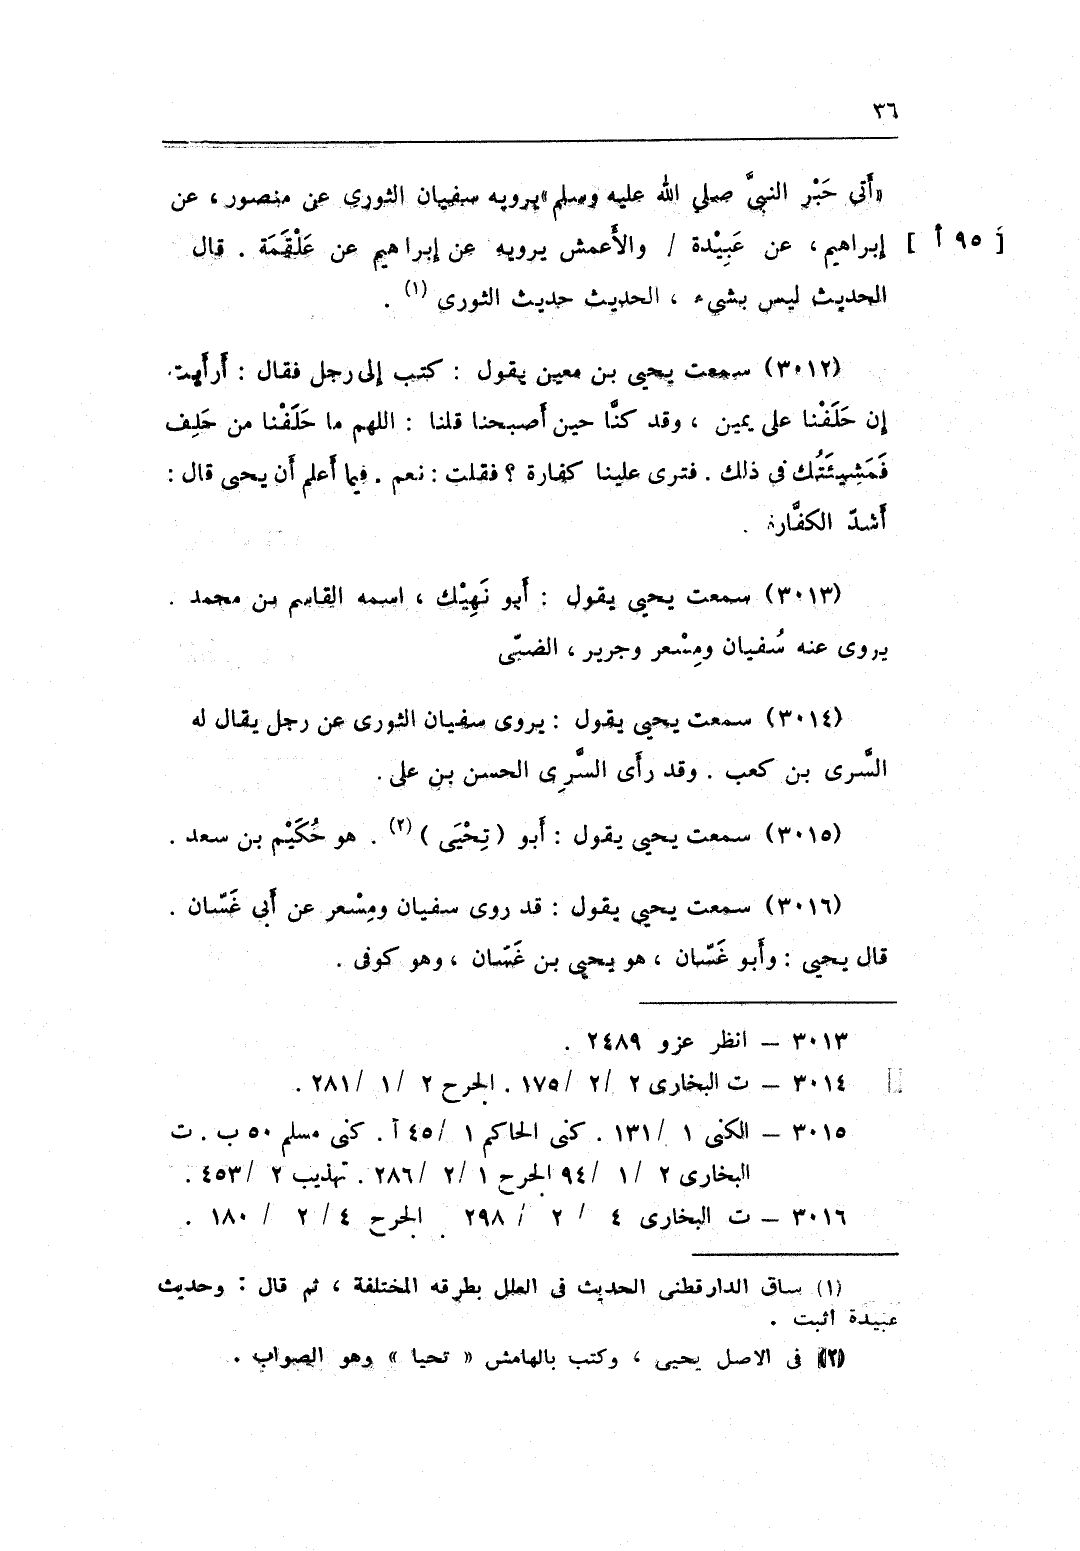 ٣٦
«أَتى حَبْر النبيَّ صلي الله عليه وسلم» يرويه سفيان الثورى عن منصور ، عن
إبراهيم ، عن عَبِيْدة / والأَعمش يرويه عن إبراهيم عن عَلْقَمَة . قال [ ٩٥ أ ]
الحديث ليس بشيء ، الحديث حديث الثورى (١) .
(٣٠١٢) سمعت يحيى بن معين يقول : كتب إلى رجل فقال : أَرأَيت
إن حَلَفْنا على يمين ، وقد كنَّا حين أَصبحنا قلنا : اللهم ما حَلَفْنا من حَلِف
فَمَشِيئَتُك في ذلك . فترى علينا كفارة ؟ فقلت : نعم . فيما أَعلم أَن يحيى قال :
أَشدّ الكفَّارة .
(٣٠١٣) سمعت يحيى يقول : أَبو نَهِيْك ، اسمه القاسم بن محمد .
يروى عنه سُفيان ومِسْعر وجرير ، الضبّى
(٣٠١٤) سمعت يحيى يقول : يروى سفيان الثورى عن رجل يقال له
السَّرى بن كعب . وقد رأَى السَّرِى الحسن بن على .
(٣٠١٥) سمعت يحيى يقول : أَبو ( تِحْيَى ) (٢) . هو حُكَيْم بن سعد .
(٣٠١٦) سمعت يحيى يقول : قد روى سفيان ومِسْعر عن أَبى غَسّان .
قال يحيى : وأَبو غَسّان ، هو يحيى بن غَسّان ، وهو كوفى .
٣٠١٣ – انظر عزو ٢٤٨٩ .
٣٠١٤ – ت البخارى ٢ /٢ /١٧٥ . الجرح ٢ /١ /٢٨١ .
٣٠١٥ – الكنى ١ /١٣١ . كنى الحاكم ١ /٤٥ أ . كنى مسلم ٥٠ ب . ت
البخارى ٢ /١ /٩٤ الجرح ١ /٢ /٢٨٦ . تهذيب ٢ /٤٥٣ .
٣٠١٦ – ت البخارى ٤ / ٢ / ٢٩٨ . الجرح ٤ / ٢ / ١٨٠ .
(١) ساق الدارقطنى الحديث فى العلل بطرقه المختلفة ، ثم قال : وحديث
عبيدة اثبت .
(٢) فى الاصل يحيى ، وكتب بالهامش « تحيا » وهو الصواب .